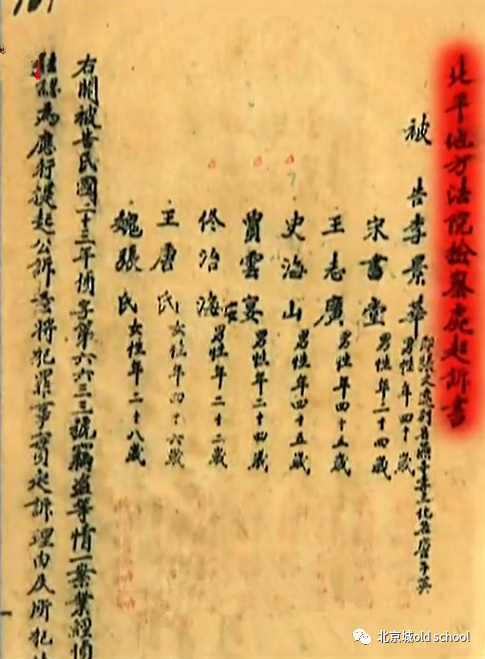 北平地方法院檢察處起訴書
被告李景華 男性年四十歲
宋書堂 男性年三十四歲
王志廣 男性年四十五歲
史海山 男性年四十五歲
賈雲宴安 男性年二十四歲
佟治海 男性年二十二歲
王唐氏 女性年四十六歲
魏張氏 女性年二十八歲
右開被告民國二十三年偵字第六六三三號竊盜等情一案業經偵
為應行提起公訴茲將犯罪事實起訴理由及所犯
北京城old school